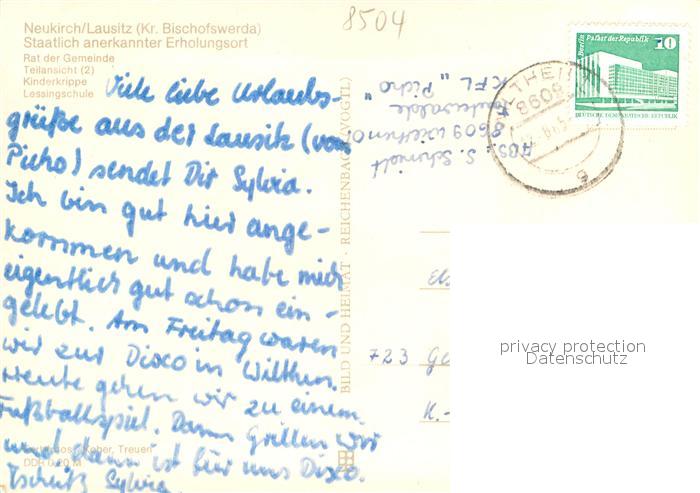 8504
Neukirch/Lausitz (Kr. Bischofswerda)
Staatlich anerkannter Erholungsort
Rat der Gemeinde
Teilansicht (2)
Kinderkrippe
Lessingschule
Viele liebe Urlaubs-
grüße aus der Lausitz (vom
Picho) sendet Dir Sylvia.
Ich bin gut hier ange-
kommen und habe mich
eigentlich gut schon ein-
gelebt. Am Freitag waren
wir zur Disco in Wilthen.
Heute gehen wir zu einem
Fußballspiel. Dann Grillen wir
und dann ist für uns Disco.
Tschüß Sylvia
Treuen
DDR 0,20 M
BILD UND HEIMAT · REICHENBACH (VOGTL)
Abs.: S. Schmidt
8609 Wilthen
KFL „Picho"
Berlin, Palast der Republik
10
DEUTSCHE DEMOKRATISCHE REPUBLIK
8609
723 Ge
K.-
privacy protection
Datenschutz